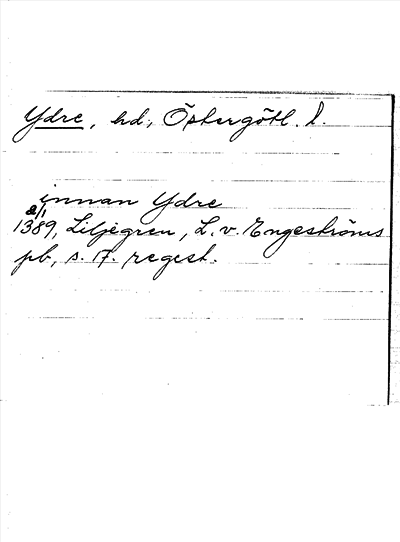 Ydre, hd, Östergötl. l.
innan Ydre
2/1
1389, Liljegren, L. v. Engeströms
pb, s. 17. regest.